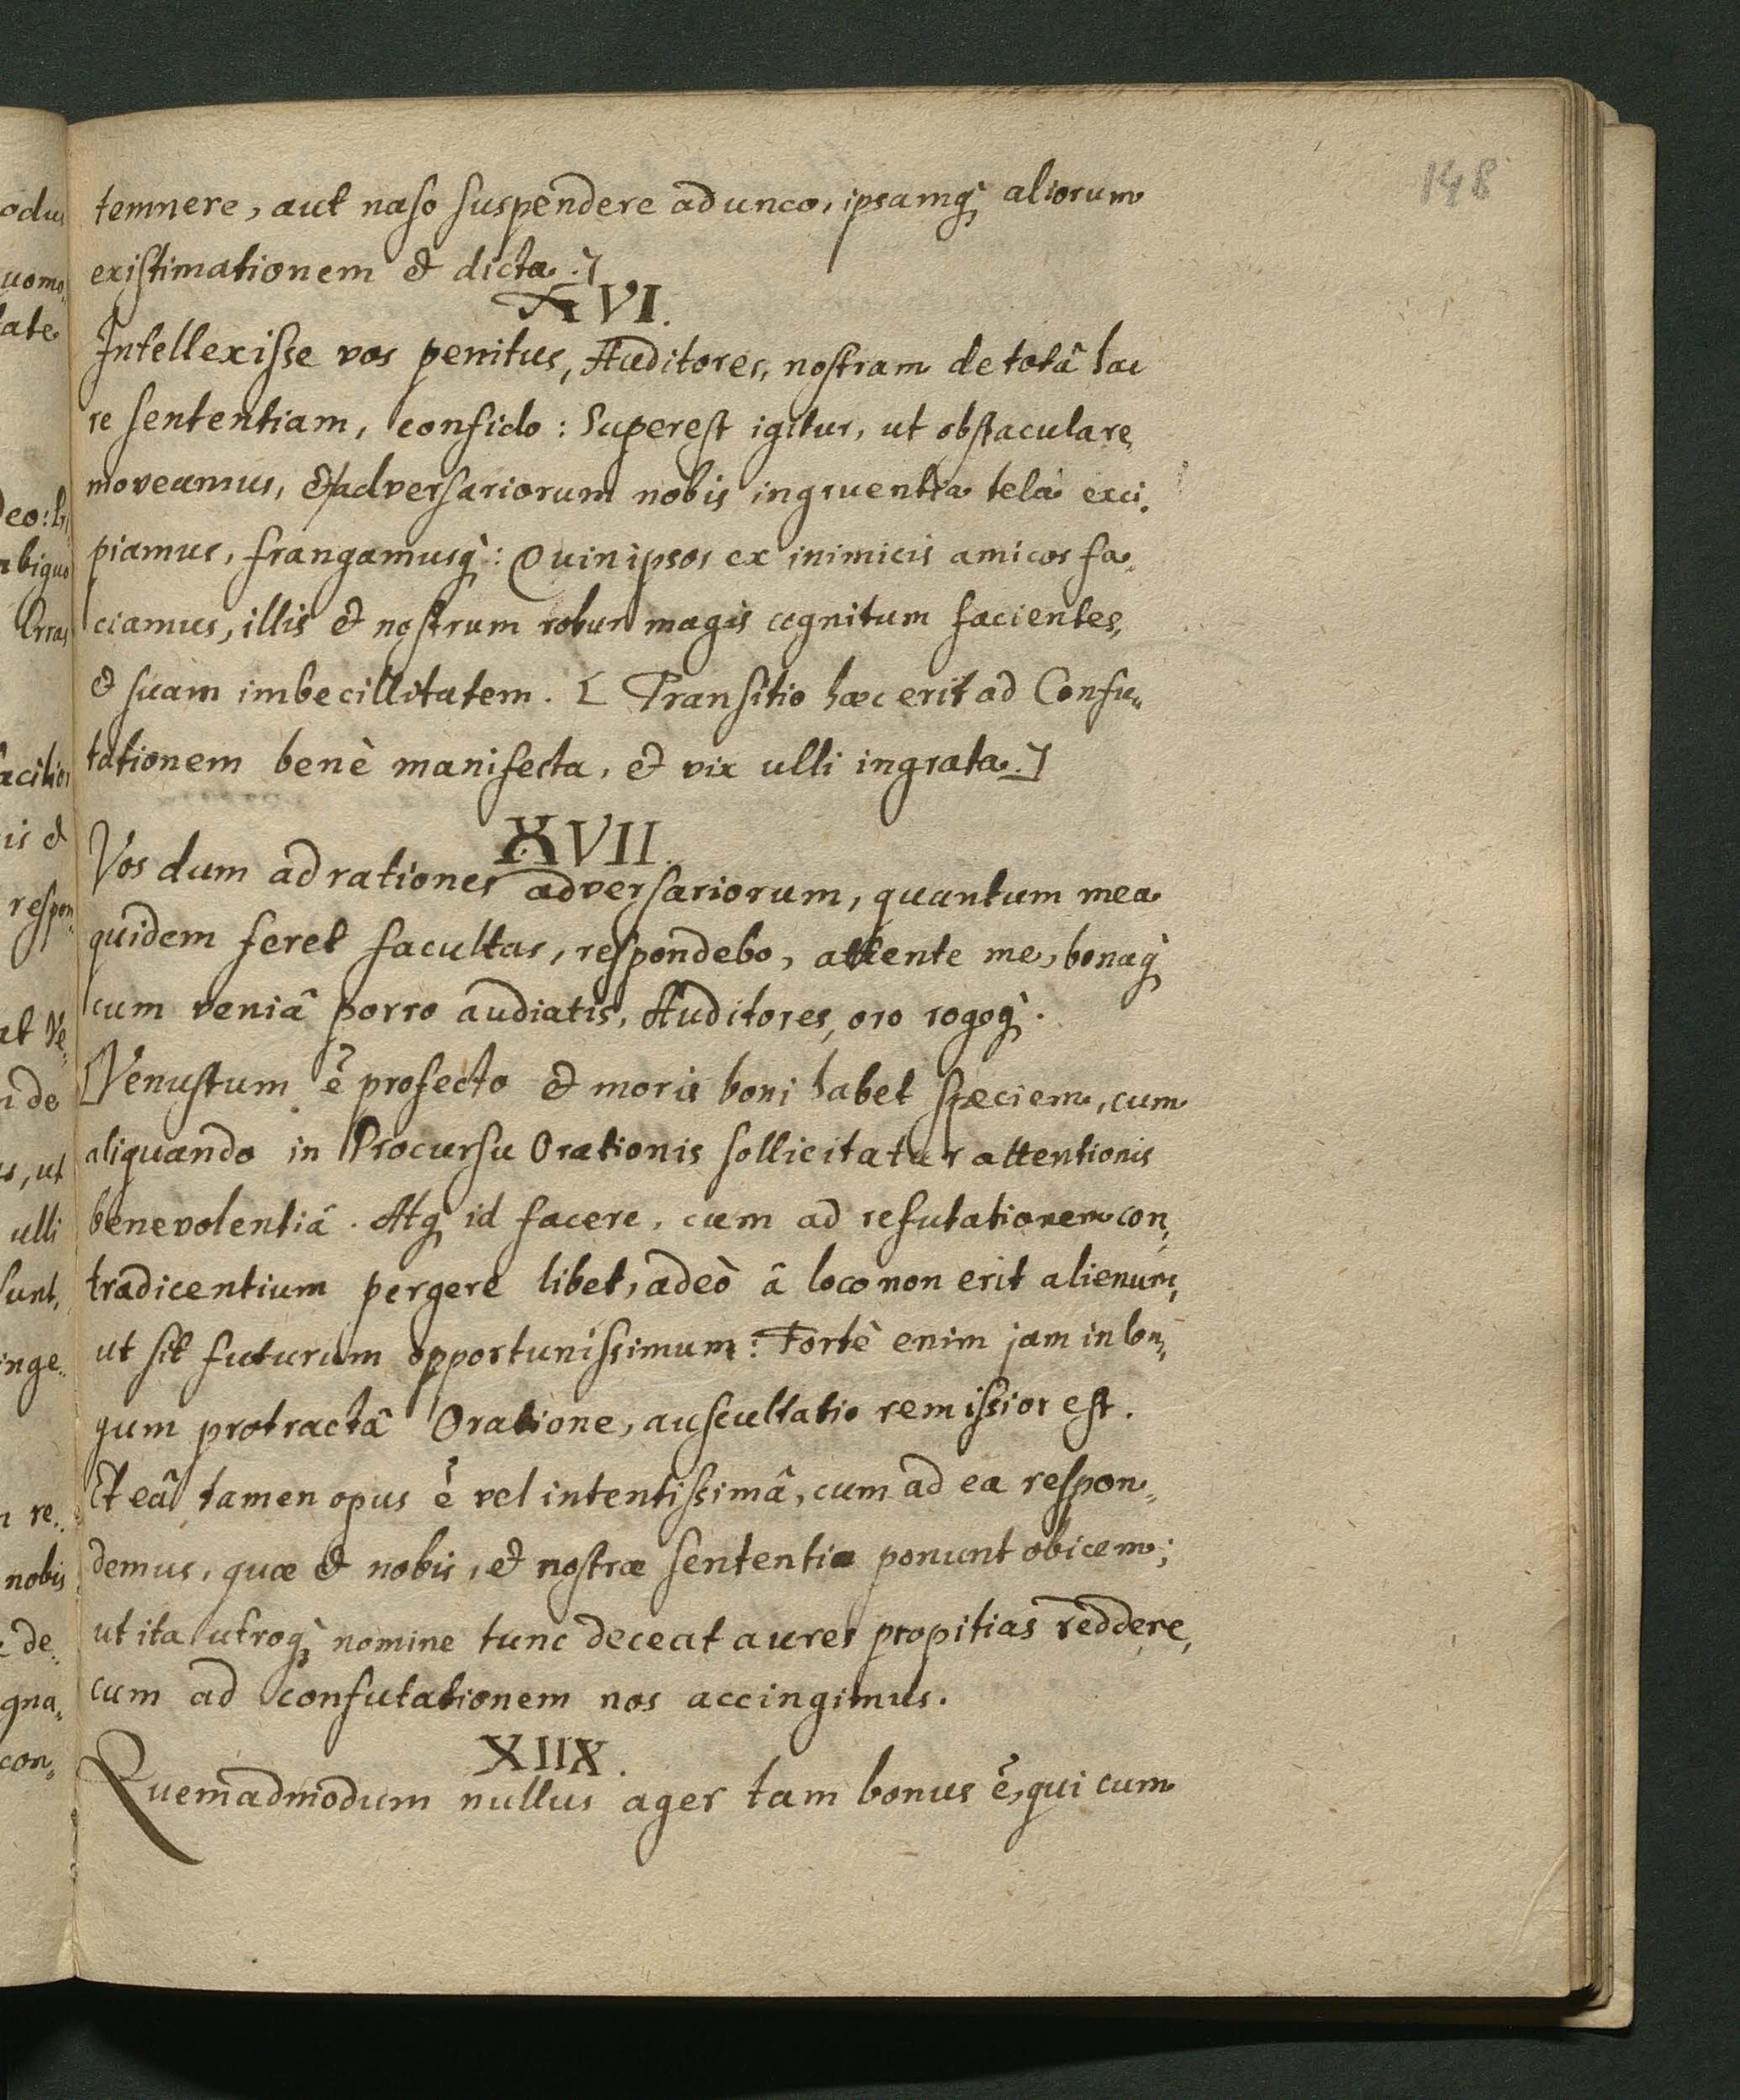 148
temnere, aut naso suspendere adunco, ipsamq̀; aliorum
existimationem & dicta.]
XVI.
Intellexisse vos penitus, Auditores, nostram de totâ hac
re sententiam, confido: Superest igitur, ut obstacula re,
moveamus, & adversariorum nobis ingruentia tela exci,
piamus, frangamusq̀;: Quin ipsos ex inimicis amicos fa,,
ciamus, illis & nostrum robur magis cognitum facientes,
& suam imbecillitatem. [ Transitio hæc erit ad Confu,,
tationem benè manifesta, & vix ulli ingrata.]
XVII.
Vos dum ad rationes adversariorum, quantum mea
quidem feret facultas, respondebo, attente me, bonaq̀;
cum veniâ porro audiatis, Auditores, oro rogoq̀;.
[Venustum ē profecto & moris boni habet speciem, cum
aliquando in Procursu Orationis sollicitatur attentionis
benevolentiâ. Atq; id facere, cum ad refutationem con,,
tradicentium pergere libet, adeò â loco non erit alienum,
ut sit futurum opportunissimum: Fortè enim jam in lon,,
gum protractâ Oratione, auscultatio remissior est.
Et eâ tamen opus ē vel intentissimâ, cum ad ea respon,,
demus, quæ & nobis, & nostræ sententiæ ponunt obicem;
ut ita utroq̀; nomine tunc deceat aures propitias reddere,
cum ad confutationem nos accingimus.
XIIX.
Quemadmodum nullus ager tam bonus ē, qui cum